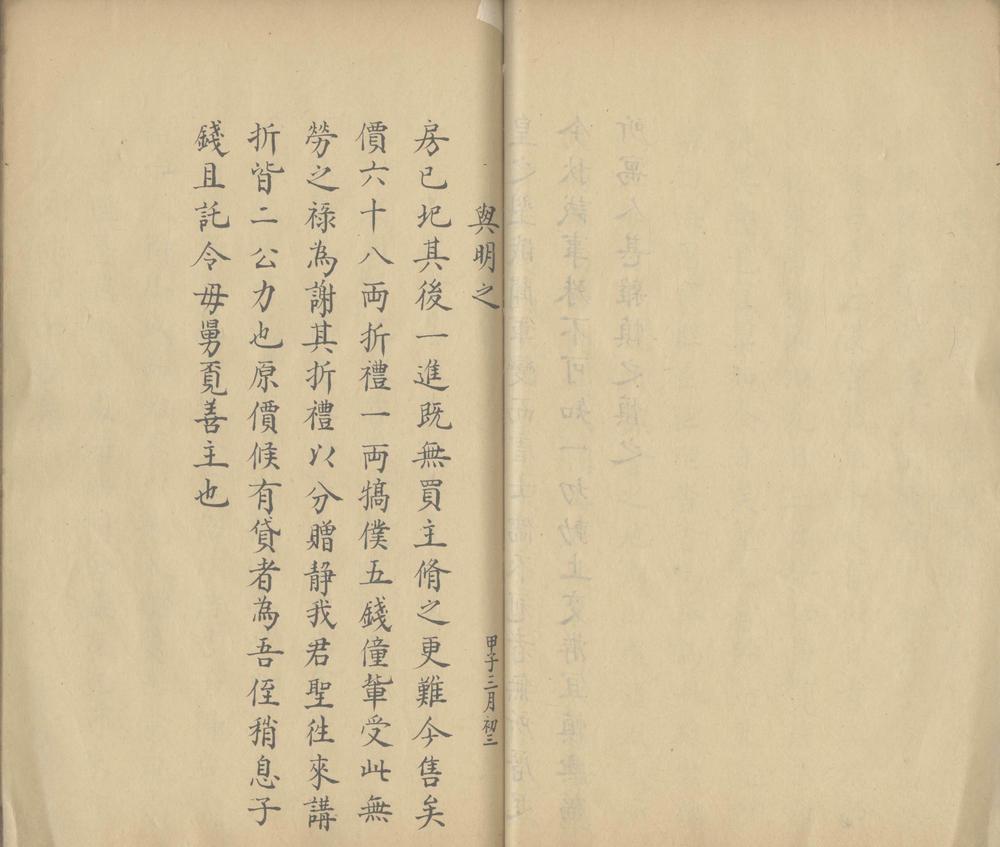 與明之 甲子三月初三
房已圮其後一進既無買主脩之更難今售矣
價六十八両折禮一両犒僕五錢僮輩受此無
勞之祿為謝其折禮以分贈静我君聖徃來講
折皆二公力也原價候有貸者為吾侄稍息子
錢且託令毋舅覔善主也